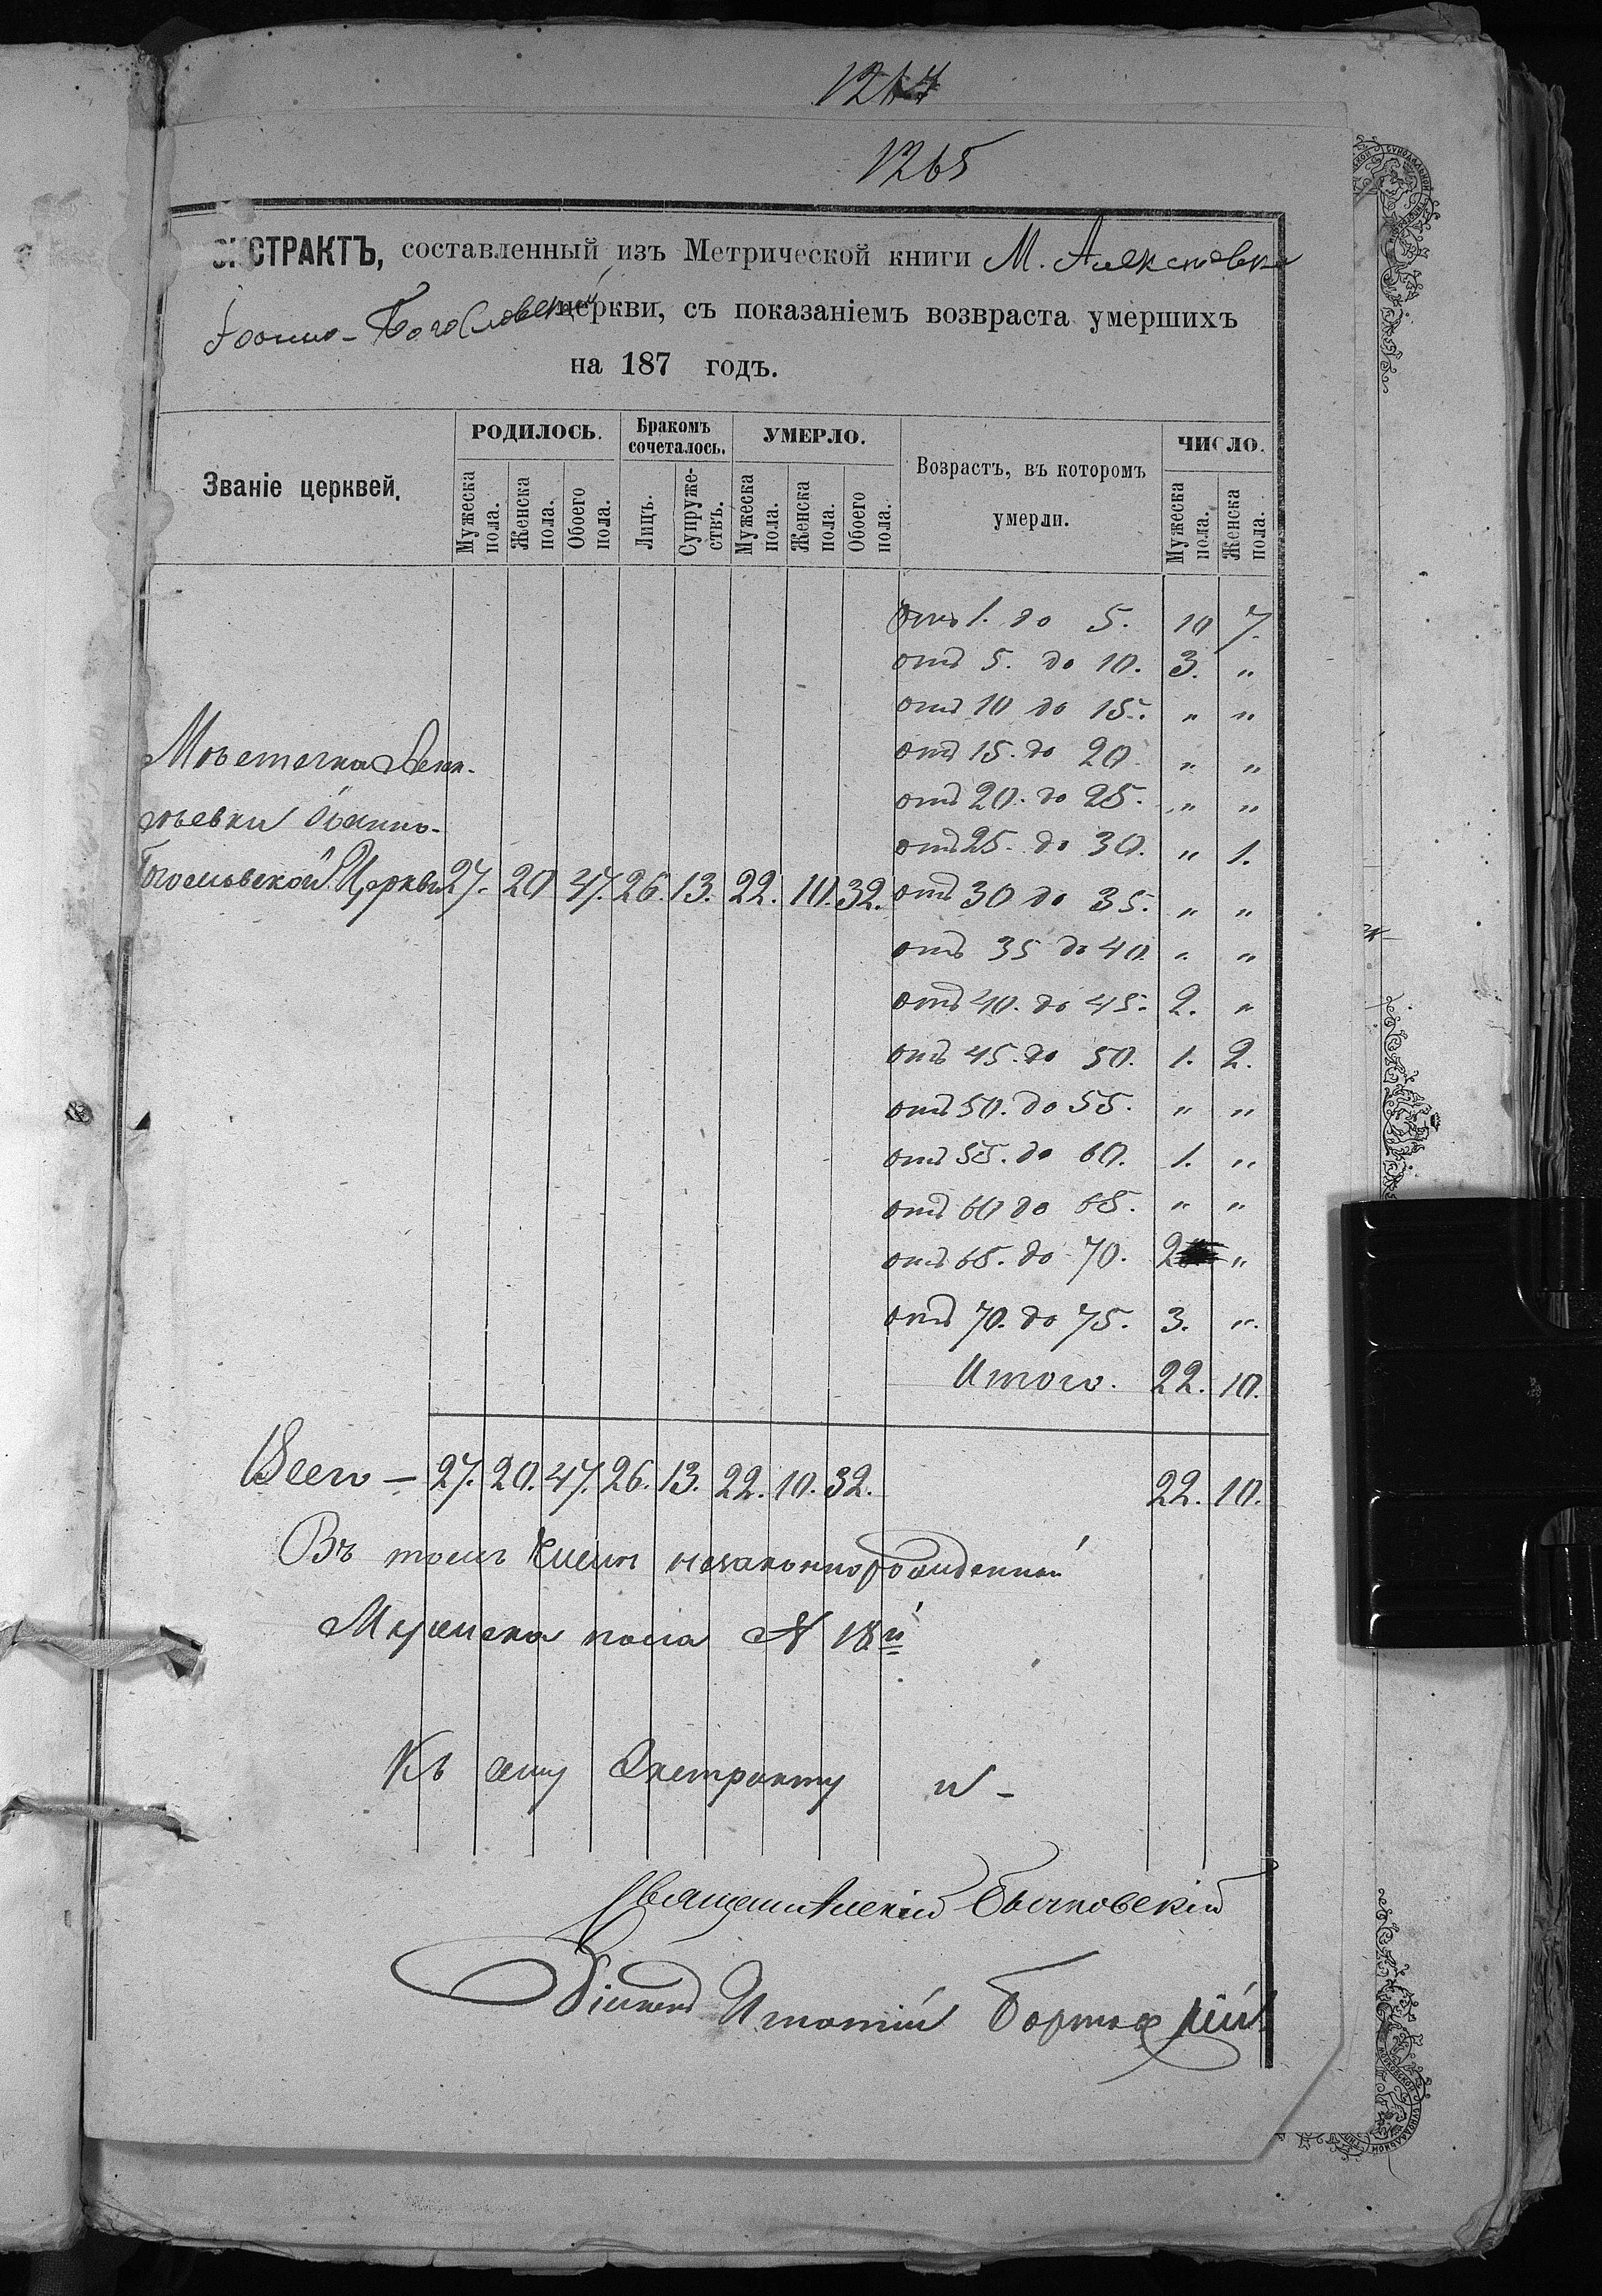 1265
ЭКСТРАКТЪ, составленный изъ Метрической книги М.
Іоанно-Богословской церкви, съ показаніемъ возвраста умершихъ
на 187 годъ.
Званіе церквей.
РОДИЛОСЬ.
Бракомъ сочеталось.
УМЕРЛО.
Возрастъ, въ которомъ умерли.
ЧИСЛО.
Мужеска пола. Женска пола. Обоего пола. Лицъ. Супружествъ. Мужеска пола. Женска пола. Обоего пола. Мужеска пола. Женска пола.
отъ 1. до 5. 10 7.
отъ 5. до 10. 3. "
отъ 10 до 15. " "
Мѣстечка
отъ 15. до 20. " "
отъ 20. до 25. " "
ѣевки Іоанно-
отъ 25. до 30. " 1.
Богословской Церкви 27. 20 47. 26. 13. 22. 10. 32. отъ 30 до 35. " "
отъ 35 до 40. " "
отъ 40. до 45. 2. "
отъ 45. до 50. 1. 2.
отъ 50. до 55. " "
отъ 55. до 60. 1. "
отъ 60 до 65. " "
отъ 65. до 70. 2 "
отъ 70. до 75. 3. "
Итого. 22. 10.
Всего — 27. 20. 47. 26. 13. 22. 10. 32. 22. 10.
Въ томъ числѣ незаконнорожденный
Мужеска пола № 18й
Къ сему Экстракту
Священ Алексій Бычковскій
Діаконъ Игнатій